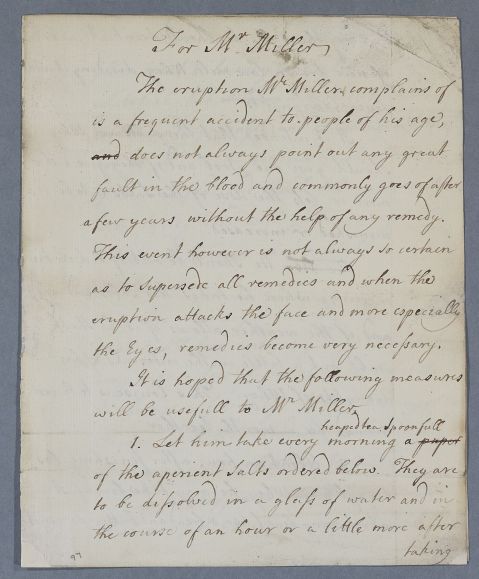 For Mr Miller
The eruption Mr Miller complains of
is a frequent accident to people of his age,
and does not always point out any great
fault in the blood and commonly goes of after
a few years without the help of any remedy.
This event however is not always so certain
as to supersede all remedies and when the
eruption attacks the face and more especially
the Eyes, remedies become very necessary.
It is hoped that the following measures
will be usefull to Mr Miller.
heaped tea spoonfull
1. Let him take every morning a paper
of the aperient Salts ordered below. They are
to be dissolved in a glass of water and in
the course of an hour or a little more after
taking
97